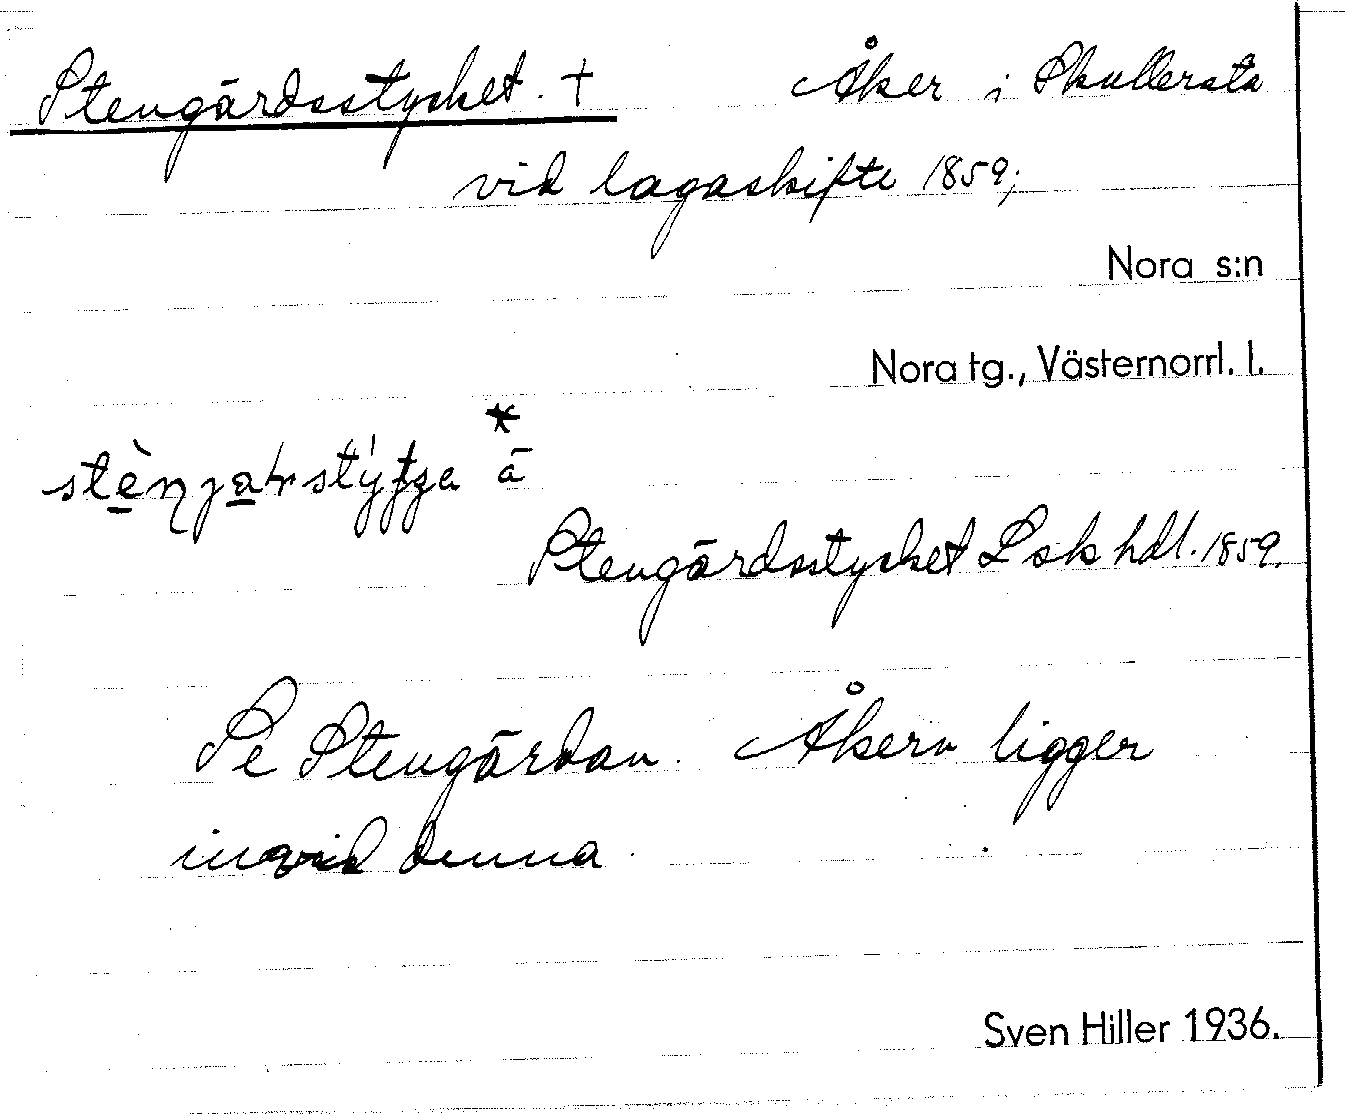 Stengärdsstycket. † Åker i Skullersta
vid lagaskifte 1859;
Nora s:n
Nora tg., Västernorrl. l.
* ā
Stengärdsstycket Lsk hdl. 1859.
Se Stengärdan. Åkern ligger
invid denna.
Sven Hiller 1936.